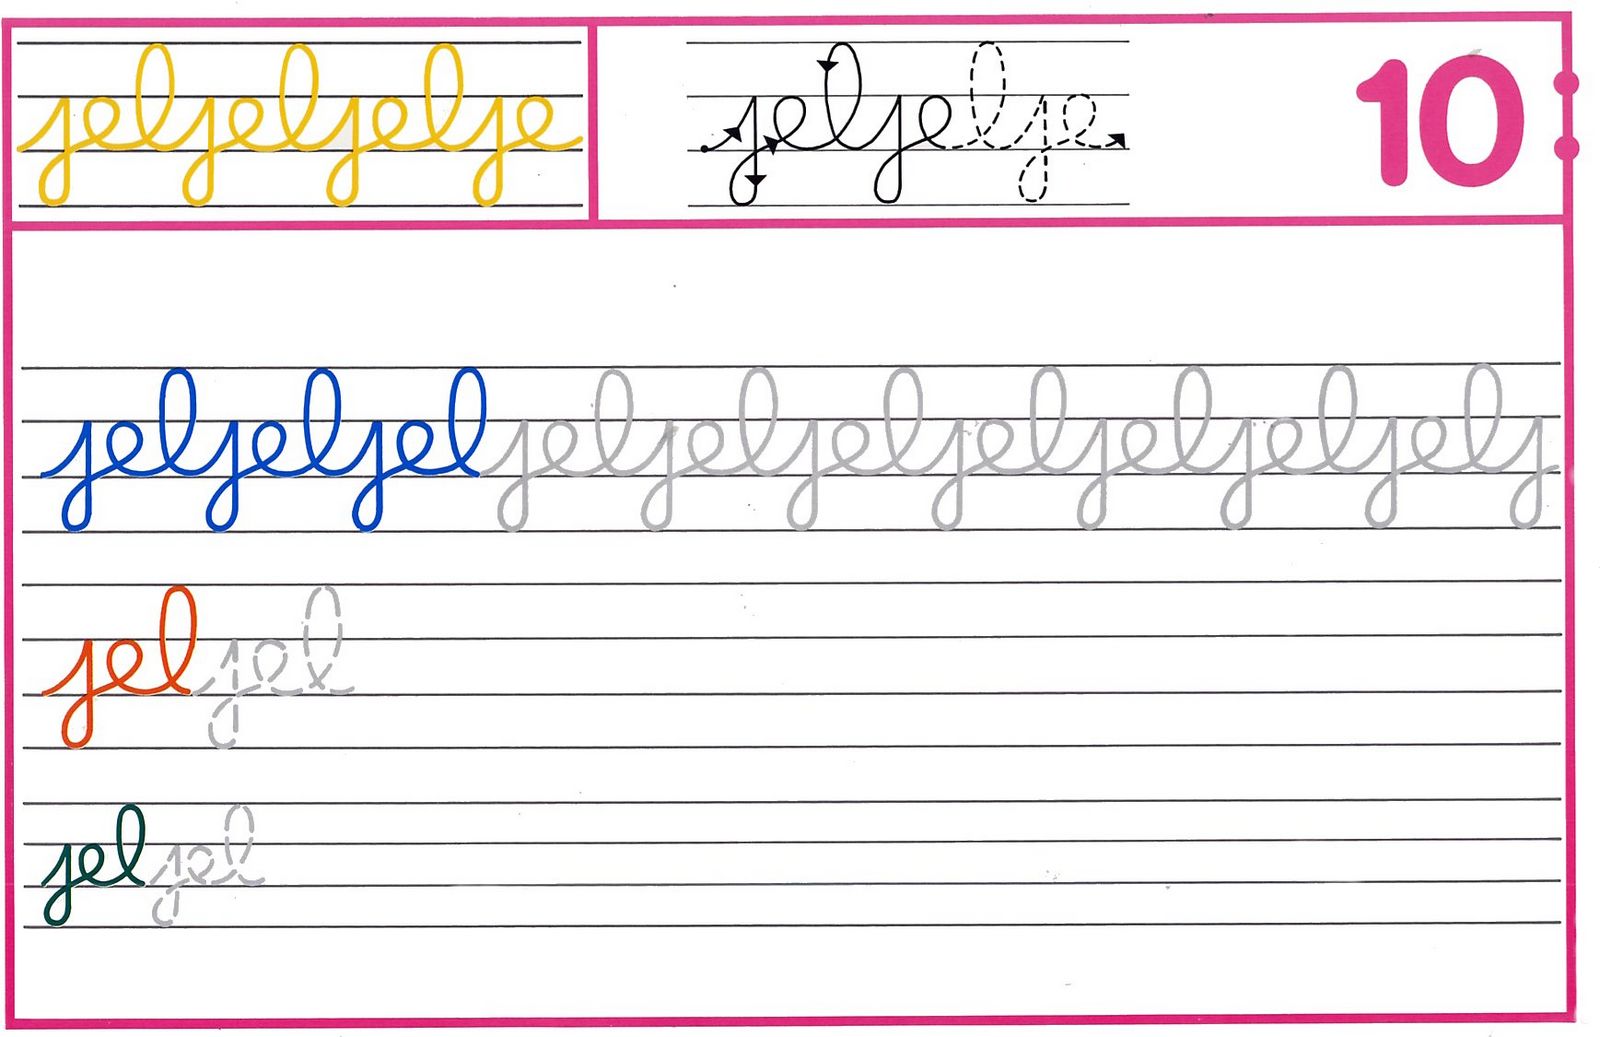 jeljeljelje
jeljelje
10
jeljeljeljeljeljeljeljeljeljelj
jeljel
jeljel